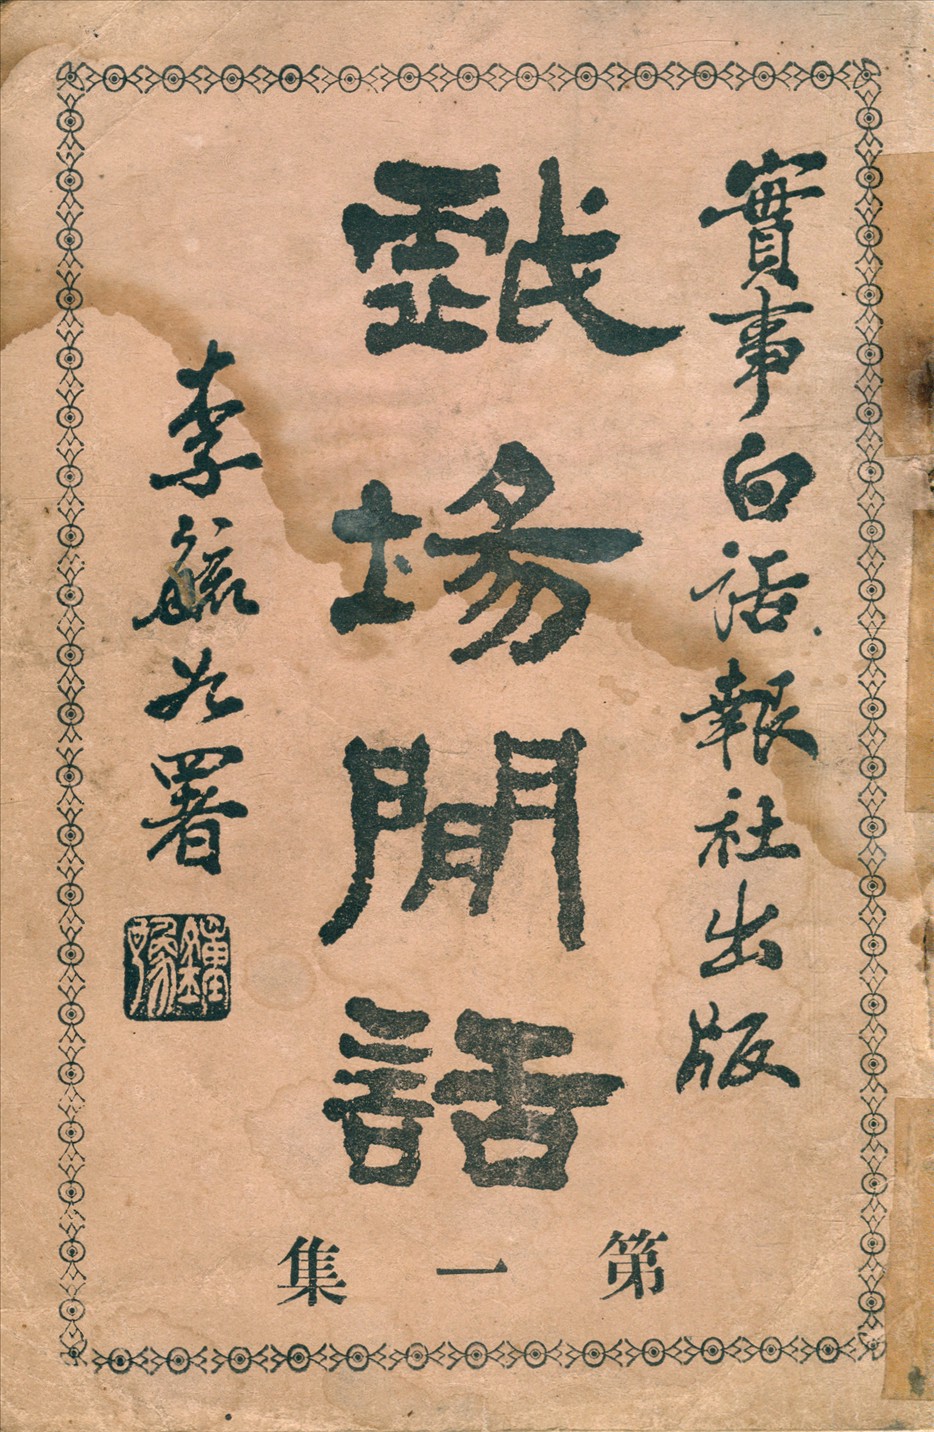 實事白話報社出版
戲場閒話
第一集
李毓如署